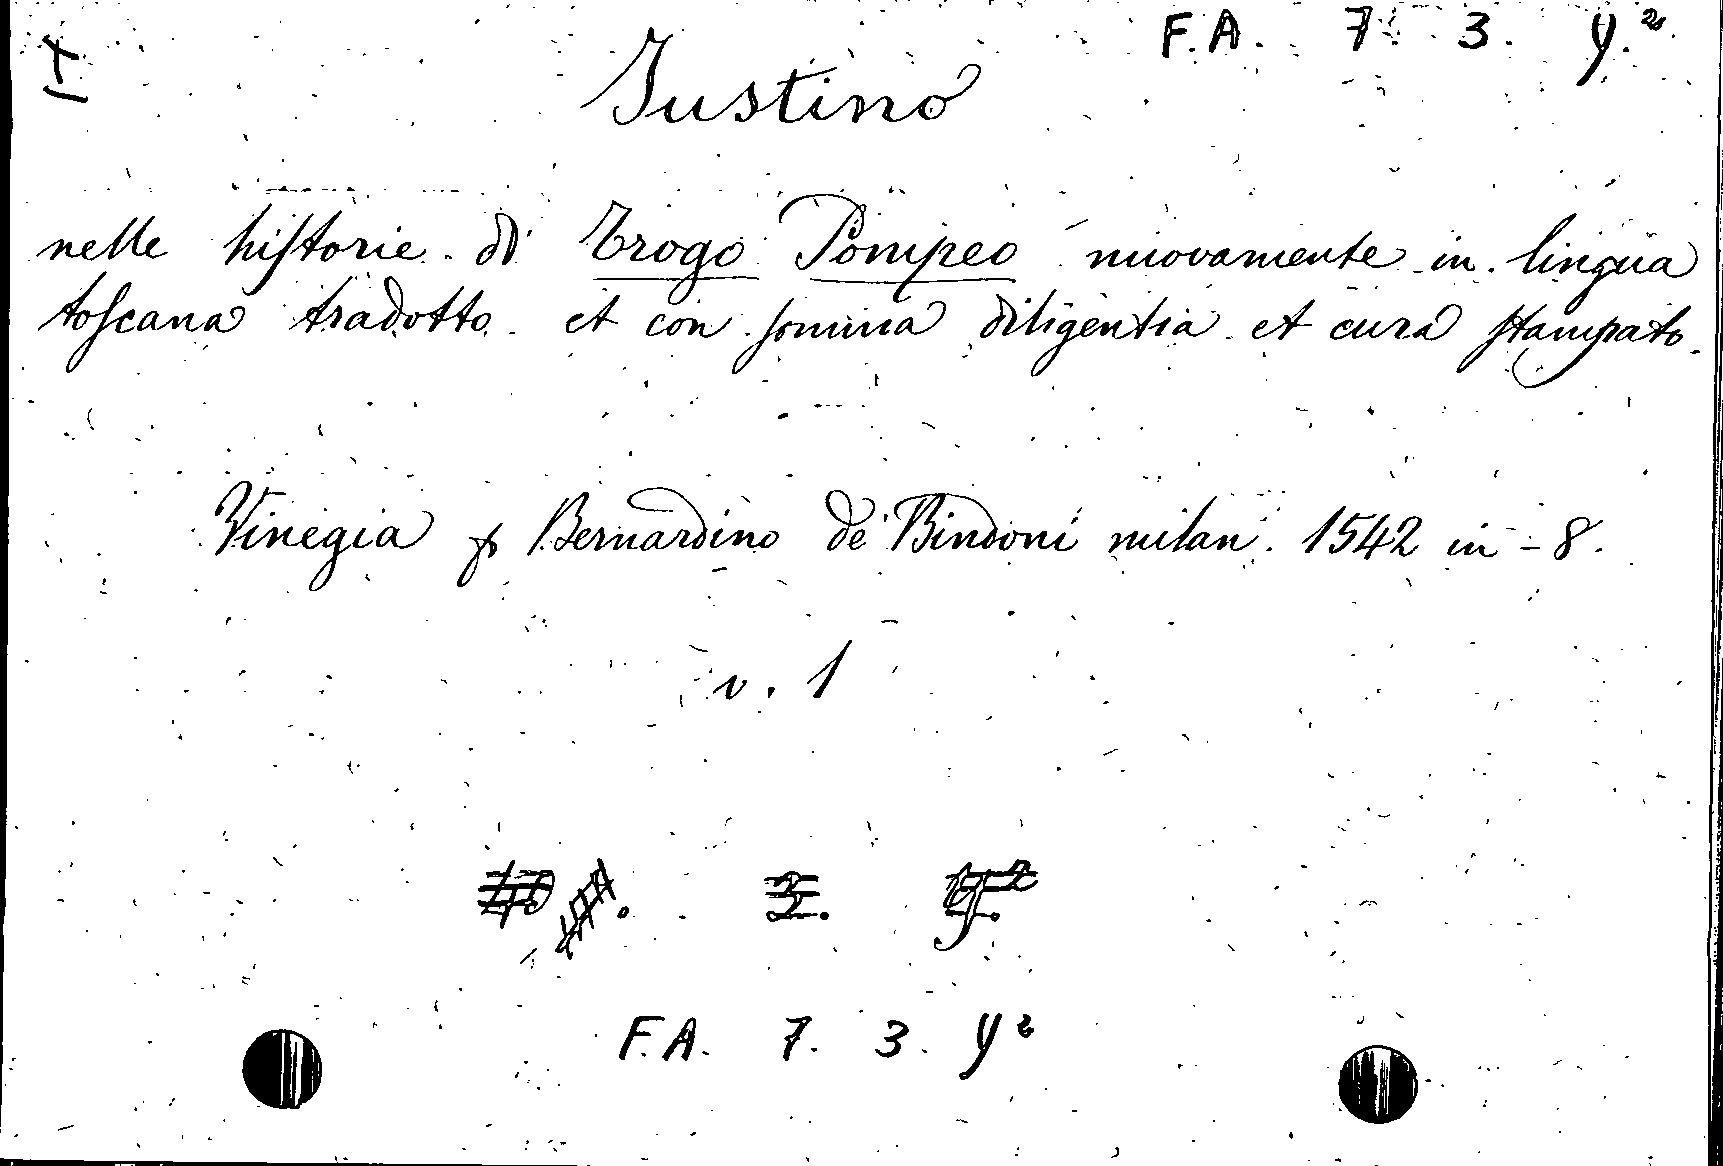 F. A. 7. 3. y.²
Justino
nelle hiſtorie di Trogo Pompeo nuovamente in lingua
toſcana tradotto et con ſomma diligentia et cura ſtampato.
Vinegia p Bernardino de Bindoni milan. 1542 in-8.
v. 1
3. y.²
F. A. 7. 3. y²